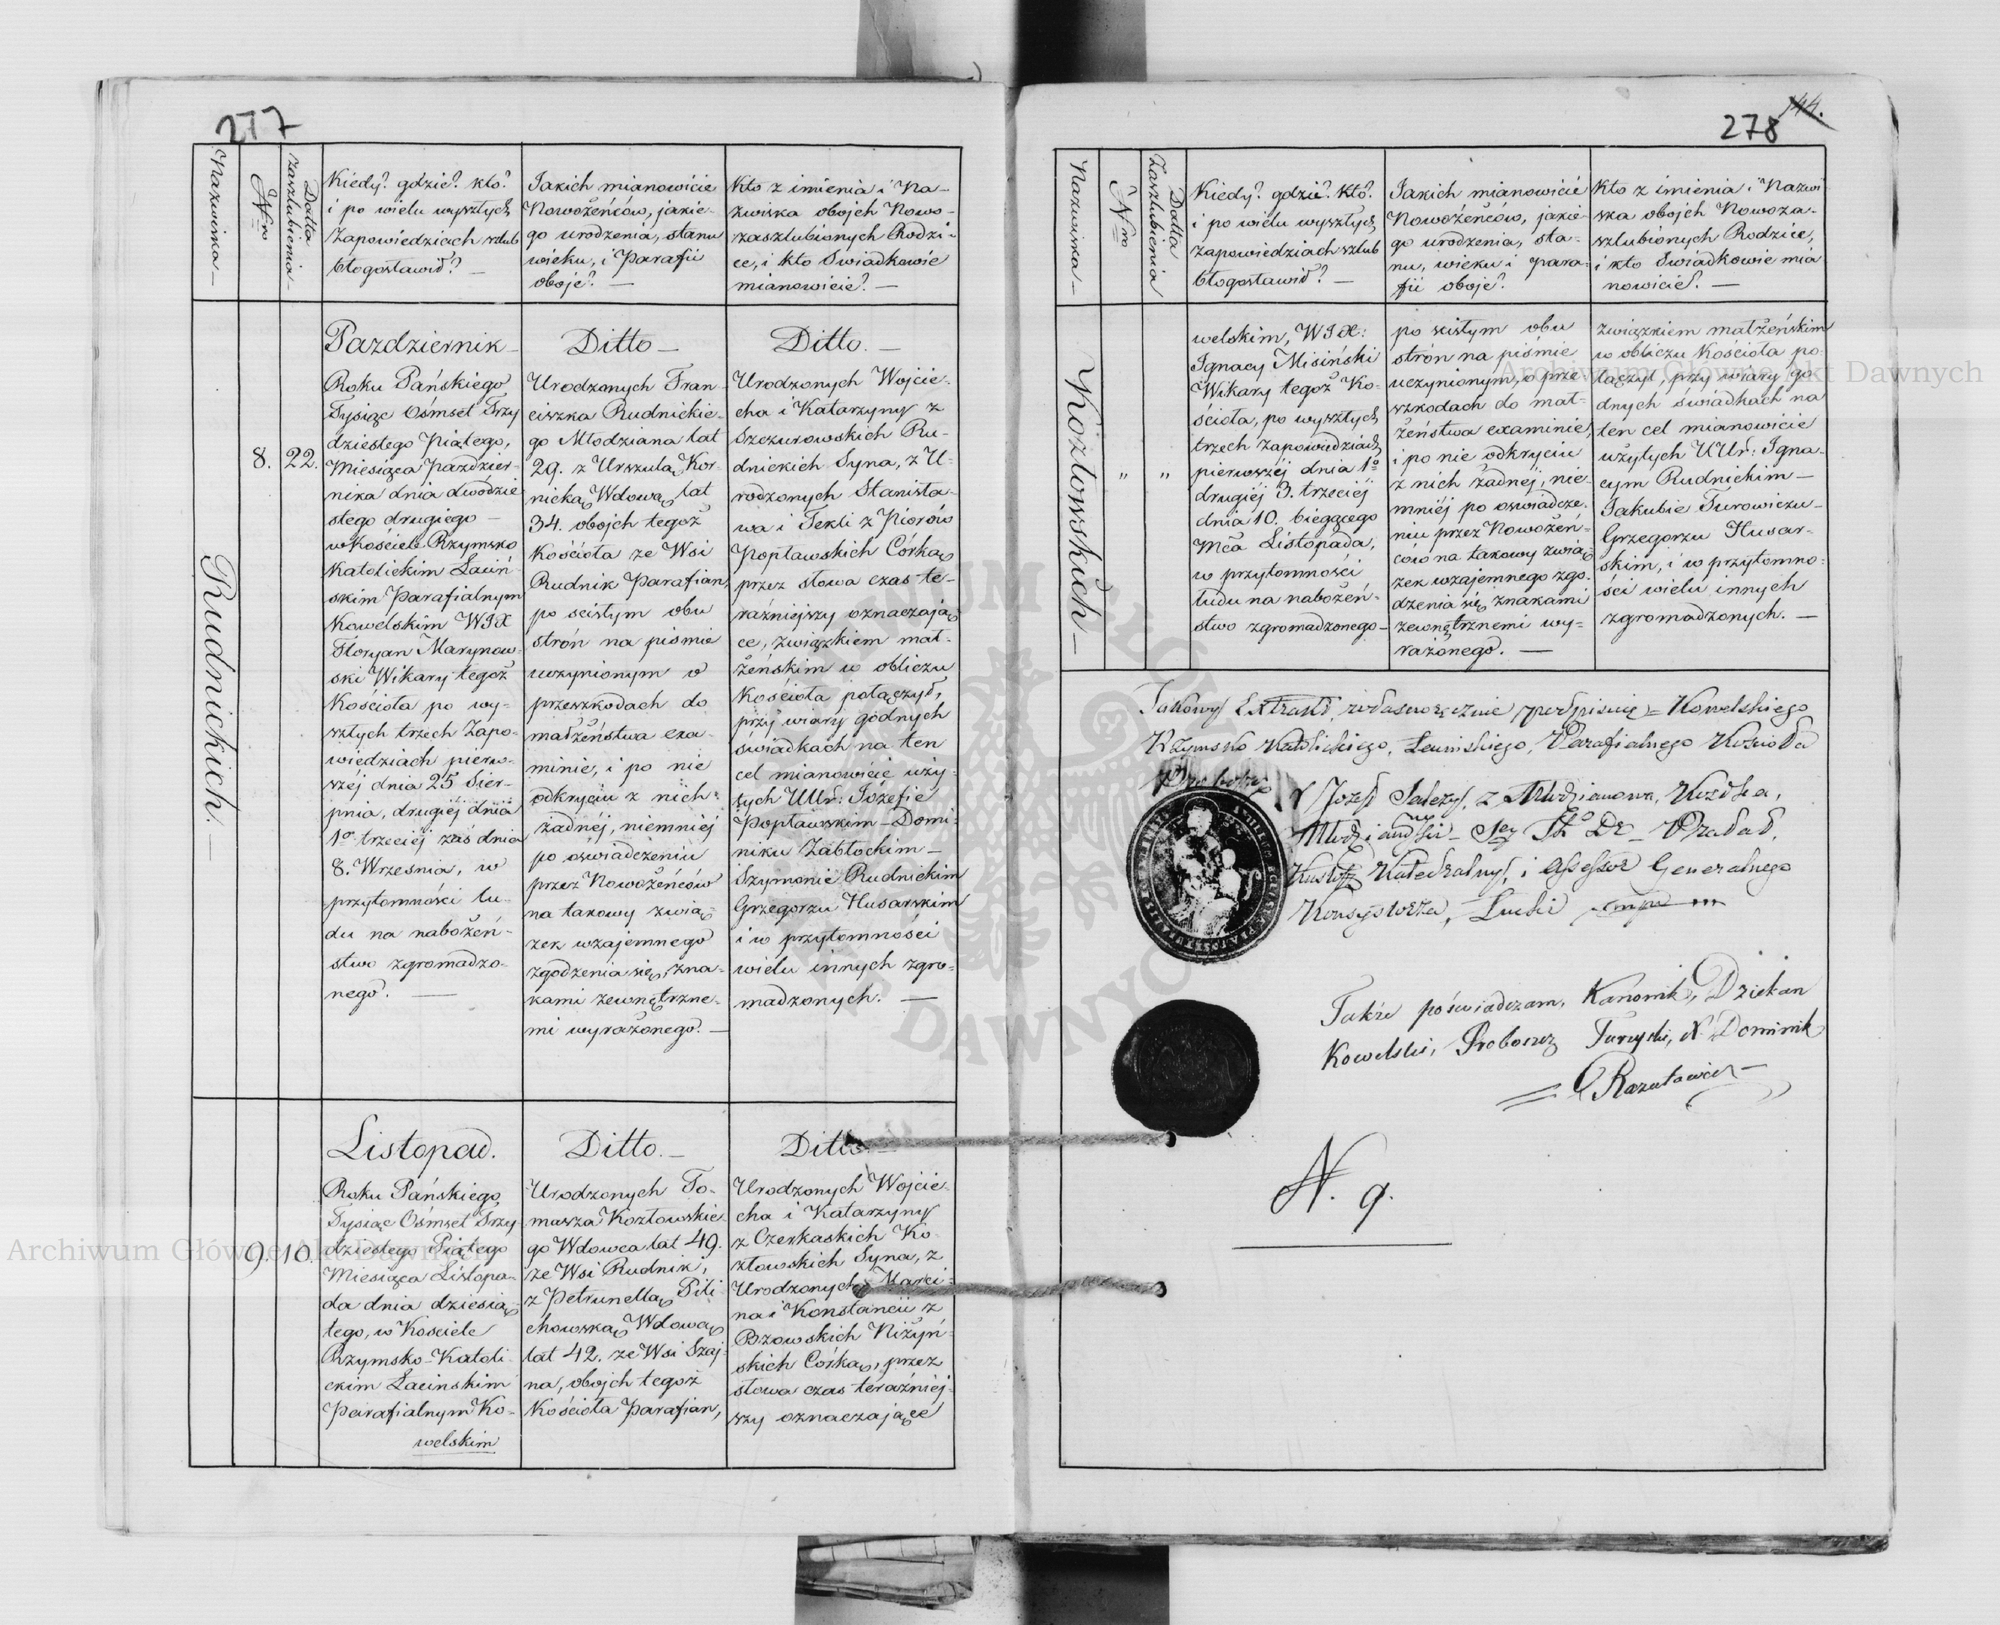 277
Nazwiska —
Nro
Datta
Zaszlubienia —
Kiedy? gdzie? kto?
i po wielu wyszłych
Zapowiedziach szlub
błogosławił? —
Jakich mianowicie
Nowożeńców, jakie-
go urodzenia, stanu
wieku, i Parafii
oboje? —
Kto z imienia i Na-
zwiska obojch Nowo-
zaszlubionych Rodzi-
ce, i kto Swiadkowie
mianowicie? —
Rudnickich. —
8.
22.
Pazdziernik —
Roku Pańskiego
Tysiąc Ośmset Trzy
dziestego Piątego,
Miesiąca Pazdzier-
nika dnia dwodzie
stego drugiego —
w Kościele Rzymsko
Katolickim Łaciń-
skim Parafialnym
Kowelskim WJX
Floryan Marynow-
ski Wikary tegoż
Kościoła po wy-
szłych trzech Zapo-
wiedziach pierw-
széj dnia 25 Sier-
pnia, drugiéj dnia
1º trzeciéj zaś dnia
8. Wrzesnia, w
przytomności lu-
du na nabożeń-
stwo zgromadzo-
nego. —
Ditto —
Urodzonych Fran-
ciszka Rudnickie-
go Młodziana lat
29. z Urszulą Kor-
nicką Wdową lat
34. obojch tegoż
Kościoła ze Wsi
Rudnik Parafian,
po scistym obu
strón na pismie
uczynionym o
przeszkodach do
małżeństwa exa-
minie, i po nie
odkryciu z nich
żadnéj, niemniéj
po oświadczeniu
przez Nowożeńców
na takowy zwią-
zek wzajemnego
zgodzenia się, zna-
kami zewnętrzne-
mi wyrażonego. —
Ditto. —
Urodzonych Wojcie-
cha i Katarzyny z
Szczurowskich Ru-
dnickich Syna, z U-
rodzonych Stanisła-
wa i Tekli z Piorów
Popławskich Córką
przez słowa czas te-
raźniejszy oznaczają
ce, związkiem mał-
żeńskim w obliczu
Kościoła połączył,
przy wiary godnych
świadkach na ten
cel mianowicie uży-
tych UUr: Józefie
Popławskim — Domi-
niku Zabłockim —
Szymonie Rudnickim
Grzegorzu Husarskim
i w przytomności
wielu innych zgro-
madzonych. —
9.
10.
Listopad.
Roku Pańskiego
Tysiąc Ośmset Trzy
dziestego Piątego
Miesiąca Listopa-
da dnia dziesią-
tego, w Kosciele
Rzymsko-Katoli-
ckim Łacinskim
Parafialnym Ko-
welskim
Ditto. —
Urodzonych To-
masza Kozłowskie-
go Wdowca lat 49.
ze Wsi Rudnik,
z Petrunellą Pili
chowską Wdową
lat 42. ze Wsi Szaj-
na, obojch tegoż
Kościoła Parafian,
Ditto. —
Urodzonych Wojcie-
cha i Katarzyny
z Czerkaskich Ko-
złowskich Syna, z
Urodzonych Marci-
na i Konstancii z
Bzowskich Niżyń-
skich Córką, przez
słowa czas teraźniej-
szy oznaczające
144.
278
Nazwiska —
Nro
Datta
Zaszlubienia
Kiedy? gdzie? Kto?
i po wielu wyszłych
Zapowiedziach szlub
błogosławił? —
Jakich mianowicié
Nowożeńców, jakie-
go urodzenia, sta-
nu, wieku i para-
fii oboje?
Kto z imienia i Nazwi
ska obojch Nowoza-
szlubionych Rodzice,
i kto Swiadkowie mia
nowicie?. —
Kozłowskich —
"
"
welskim, WJX:
Ignacy Misiński
Wikary tegoż Ko-
ścioła, po wyszłych
trzech Zapowiedziach
pierwszéj dnia 1º
drugiéj 3. trzeciéj
dnia 10. bieżącego
Mca Listopada,
w przytomności
ludu na nabożeń-
stwo zgromadzonego —
po scistym obu
strón na piśmie
uczynionym, o prze
szkodach do mał-
żeństwa examinie,
i po nie odkryciu
z nich żadnéj, nie-
mniéj po oswiadcze-
niu przez Nowożeń-
ców na takowy zwią
zek wzajemnego zgo-
dzenia się znakami
zewnętrznemi wy-
rażonego. —
związkiem małżeńskim
w obliczu Kościoła po
łączył, przy wiary go
dnych świadkach na
ten cel mianowicie
użytych UUr: Igna-
cym Rudnickim —
Jakubie Turowiczu —
Grzegorzu Husar-
skim, i w przytomno-
ści wielu innych
zgromadzonych. —
Takowy Extrakt, własnoręcznie podpisuię — Kowelskiego
Rzymsko Katolickiego, Łacinskiego, Parafialnego Kościoła
Proboszcz
X Jozef Salezy, z
Kustosz Katedralny, i Assessor Generalnego
Konsystorza, Łucki mp
Także poświadczam, Kanonik, Dziekan
Kowelski, Proboszcz Turzyski, X Dominik
N. 9.
Archiwum Główne Akt Dawnych
Archiwum Główne Akt Dawnych